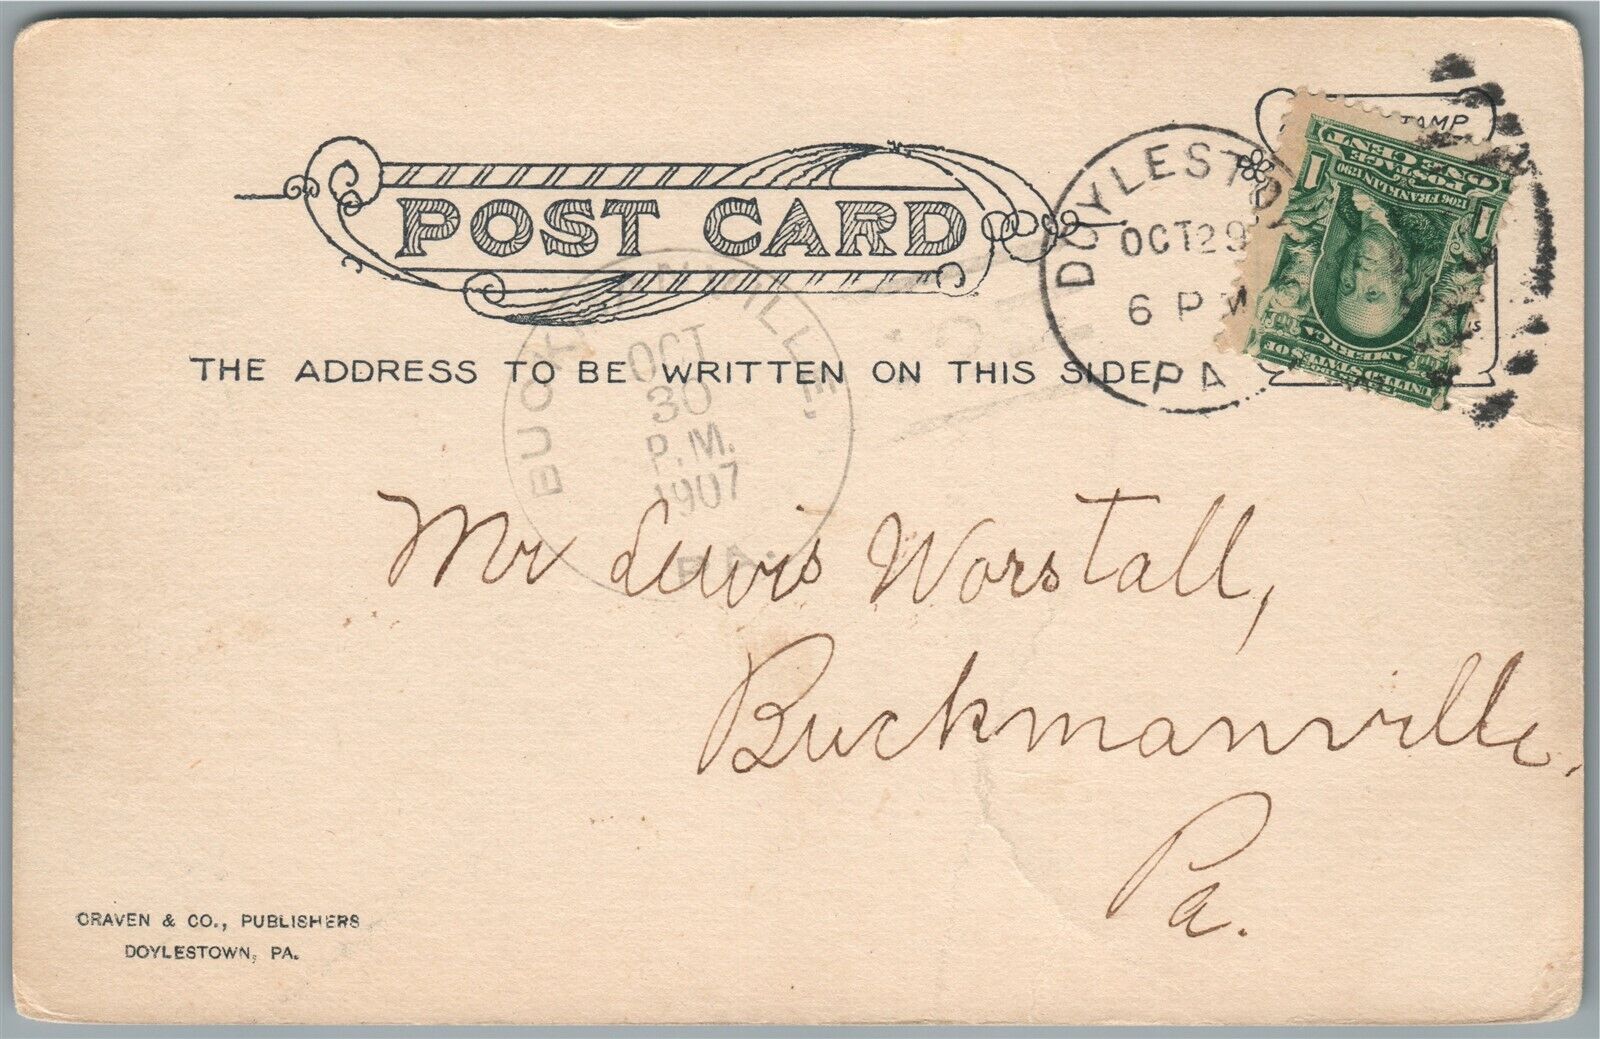 POST CARD
THE ADDRESS TO BE WRITTEN ON THIS SIDE
DOYLESTO
OCT 29
6 P M
PA
BUCK ANVILLE,
OCT
30
P.M.
1907
PA.
TAMP
1
POSTAGE
ONE CENT
1706 FRANKLIN 1790
1
UNITED STATES OF
AMERICA
Mr Lewis Worstall,
Buckmanville,
Pa.
CRAVEN & CO., PUBLISHERS
DOYLESTOWN, PA.